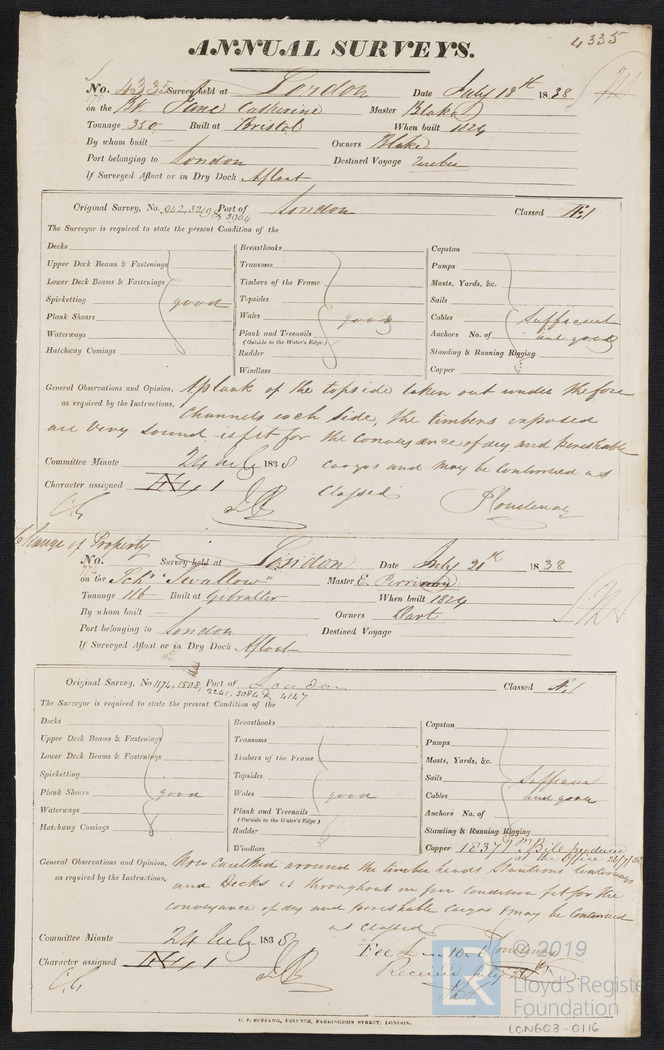 4335
ANNUAL SURVEYS.
No. 4335 Survey held at London Date July 18th 1838
on the Bk Jane Catherine Master Blake
Tonnage 350 Built at Bristol When built 1824
By whom built Owners Blake
Port belonging to London Destined Voyage
If Surveyed Afloat or in Dry Dock Afloat
Original Survey, No. 642, 3219 & 3904 Port of London Classed Æ1
The Surveyor is required to state the present Condition of the
Decks Breasthooks Capstan
Upper Deck Beams & Fastenings Transoms Pumps
Lower Deck Beams & Fastenings Timbers of the Frame Masts, Yards, &c.
Spirketting good Topsides Sails
Plank Shears Wales good Cables Sufficient
Waterways Plank and Treenails Anchors No. of and good
(Outside to the Water's Edge)
Hatchway Comings Rudder Standing & Running Rigging
Windlass Copper
General Observations and Opinion, A plank of the topside taken out under the fore
as required by the Instructions, Channels each side, the timbers exposed
are very sound, is fit for the conveyance of dry and perishable
Committee Minute 24 July 1838 cargos and may be continued as
Character assigned Æ 1 Classed
Change of Property
No. Survey held at London Date July 21th 1838
on the Schr "Swallow" Master E.
Tonnage 116 Built at Gibralter When built 1824
By whom built Owners Dart
Port belonging to London Destined Voyage
If Surveyed Afloat or in Dry Dock Afloat
Original Survey, No 1174, 1508, 2241, 3084 & 4147 Port of London Classed Æ1
The Surveyor is required to state the present Condition of the
Decks Breasthooks Capstan
Upper Deck Beams & Fastenings Transoms Pumps
Lower Deck Beams & Fastenings Timbers of the Frame Masts, Yards, &c.
Spirketting Topsides Sails Sufficient
Plank Shears good Wales good Cables and good
Waterways Plank and Treenails Anchors No. of
(Outside to the Water's Edge)
Hatchway Comings Rudder Standing & Running Rigging
Windlass Copper 1837 Bill produced
at the Office
General Observations and Opinion, Now caulked around the timber heads Stantions Waterways
as required by the Instructions, and Decks is throughout in fair condition fit for the
conveyance of dry and perishable cargos & may be continued
as classed
Committee Minute 24 July 1838
Character assigned Æ 1 Received July
C. F. SEYFANG, PRINTER, FARRINGDON STREET, LONDON.
LR © 2019
Lloyd's Register
Foundation
LON603-0116